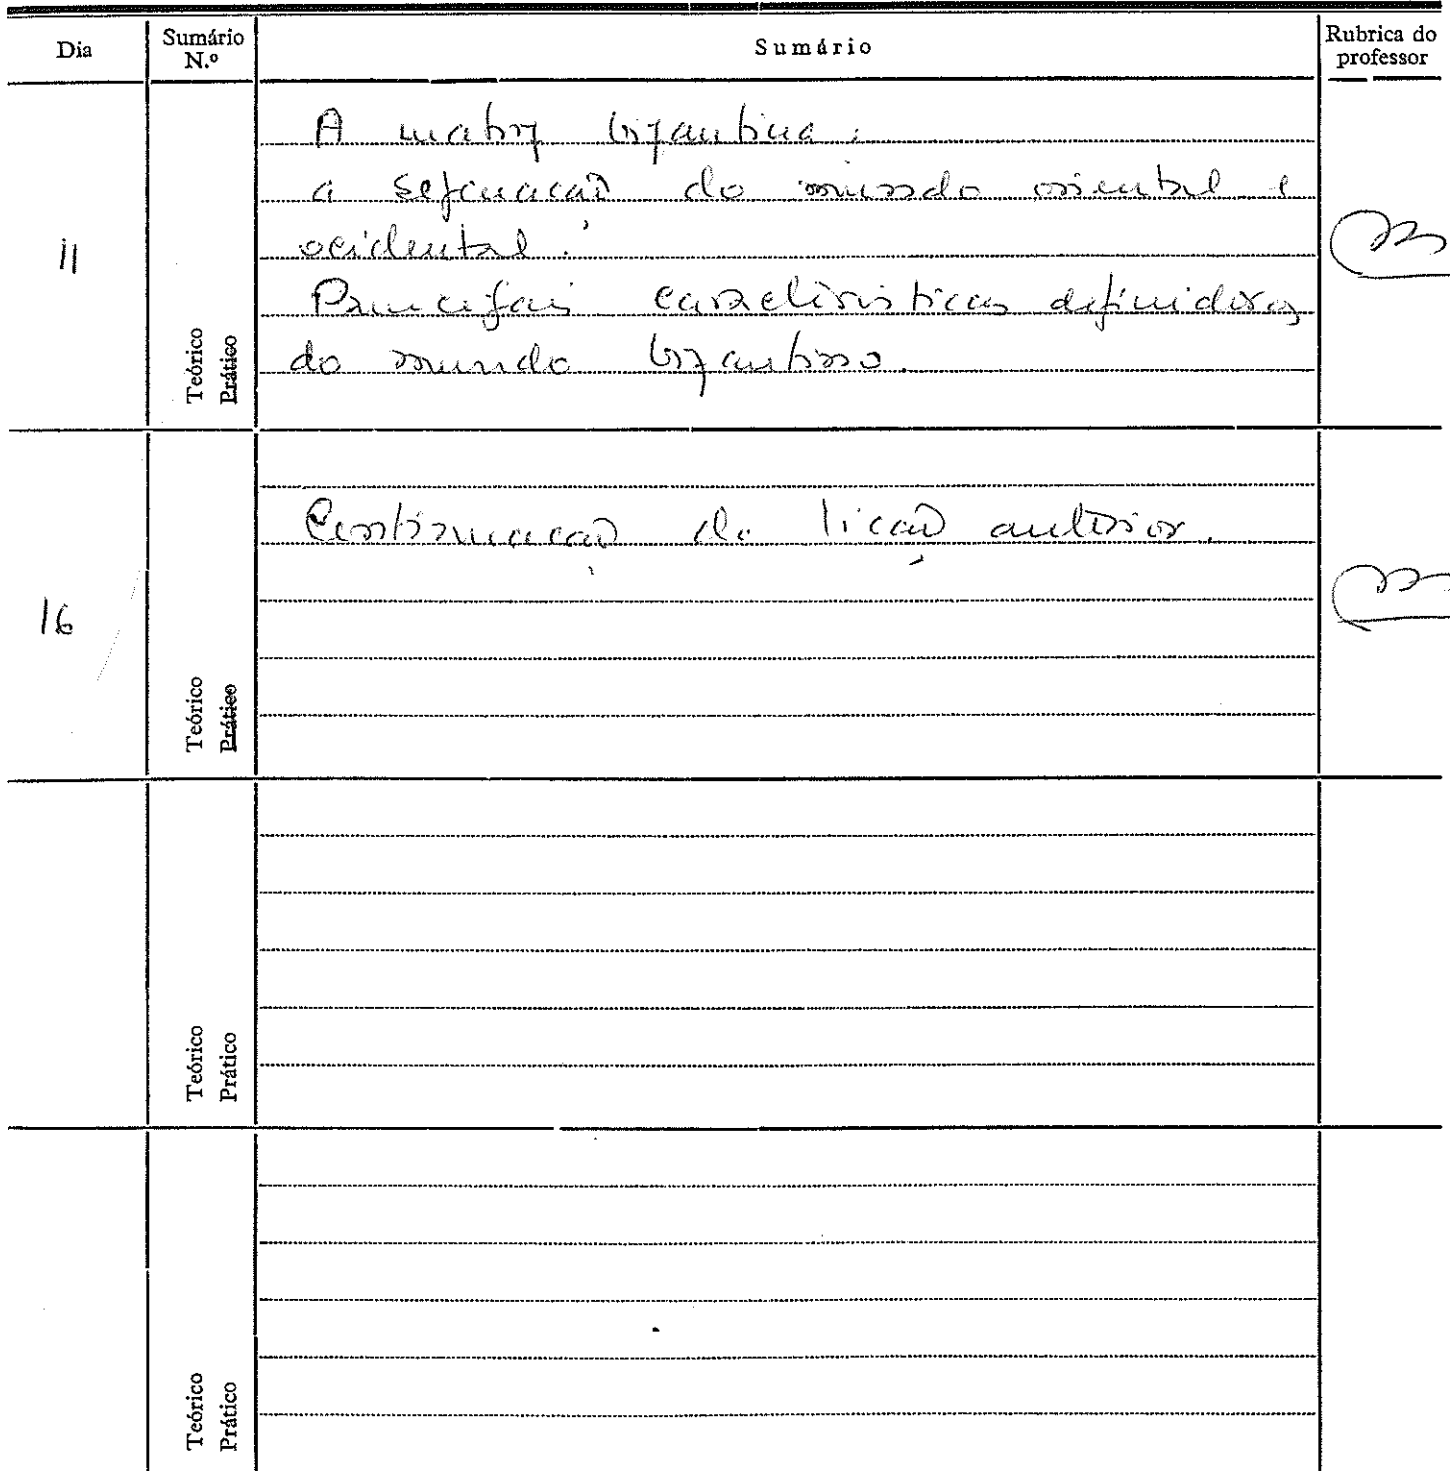 Dia
Sumário N.º
Sumário
Rubrica do professor
11
Teórico
Prático
A matriz bizantina:
a separação do mundo oriental e
ocidental.
Principais características definidoras
do mundo bizantino.
16
Teórico
Prático
Continuação da lição anterior.
Teórico
Prático
Teórico
Prático